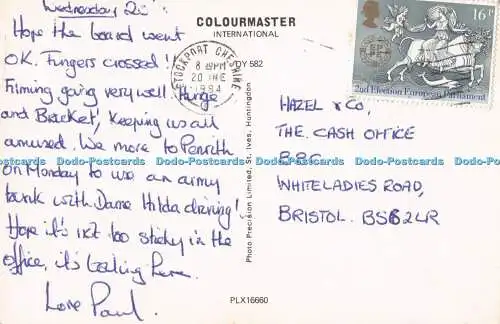 Wednesday 20th
Hope the board went
OK. Fingers crossed!
Filming going very well. Hinge
and Bracket, keeping us all
amused. We move to Penrith
on Monday to use an army
tank with Dame Hilda driving!
Hope it's not too sticky in the
office, it's boiling here.
Love Paul.
COLOURMASTER
INTERNATIONAL
DY 582
STOCKPORT CHESHIRE
8 PM
20 JNE
1984
16p
2nd Election European Parliament
HAZEL & Co,
THE CASH OFFICE
BBC
WHITELADIES ROAD,
BRISTOL. BS8 2LR
Photo Precision Limited, St. Ives, Huntingdon
PLX16660
Dodo-Postcards Dodo-Postcards Dodo-Postcards Dodo-Postcards Dodo-Postcards